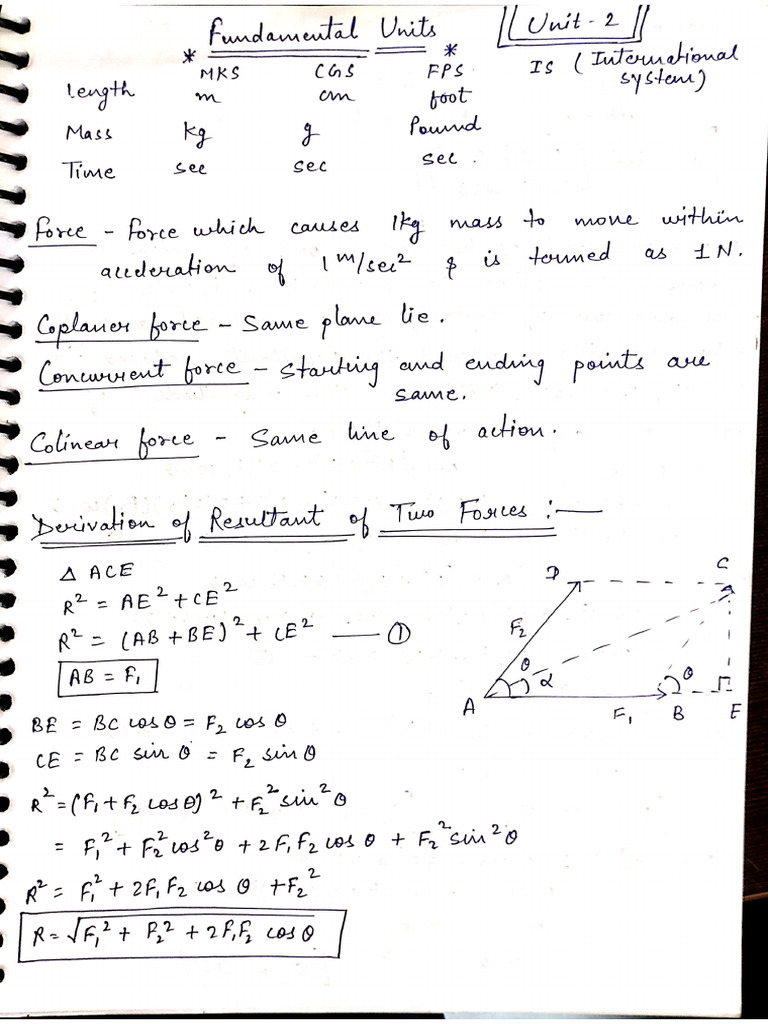 Fundamental Units
Unit - 2
* MKS CGS FPS *
IS (International system)
Length m cm foot
Mass kg g Pound
Time sec sec sec.
Force - Force which causes 1kg mass to move within
acceleration of 1 m/sec² & is termed as 1N.
Coplaner force - Same plane lie.
Concurrent force - Starting and ending points are
same.
Colinear force - Same line of action.
Derivation of Resultant of Two Forces :—
Δ ACE
R² = AE² + CE²
R² = (AB + BE)² + CE² —— ①
AB = F₁
BE = BC cos θ = F₂ cos θ
CE = BC sin θ = F₂ sin θ
R² = (F₁ + F₂ cos θ)² + F₂² sin² θ
= F₁² + F₂² cos² θ + 2 F₁ F₂ cos θ + F₂² sin² θ
R² = F₁² + 2F₁ F₂ cos θ + F₂²
R = √F₁² + F₂² + 2F₁F₂ cos θ
D C
F₂
θ α θ
A F₁ B E